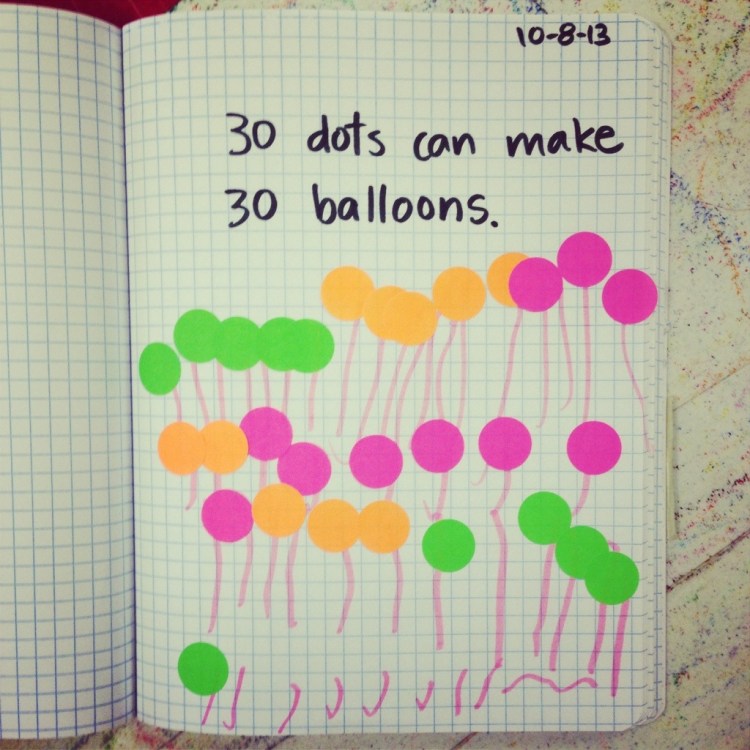 10-8-13
30 dots can make
30 balloons.